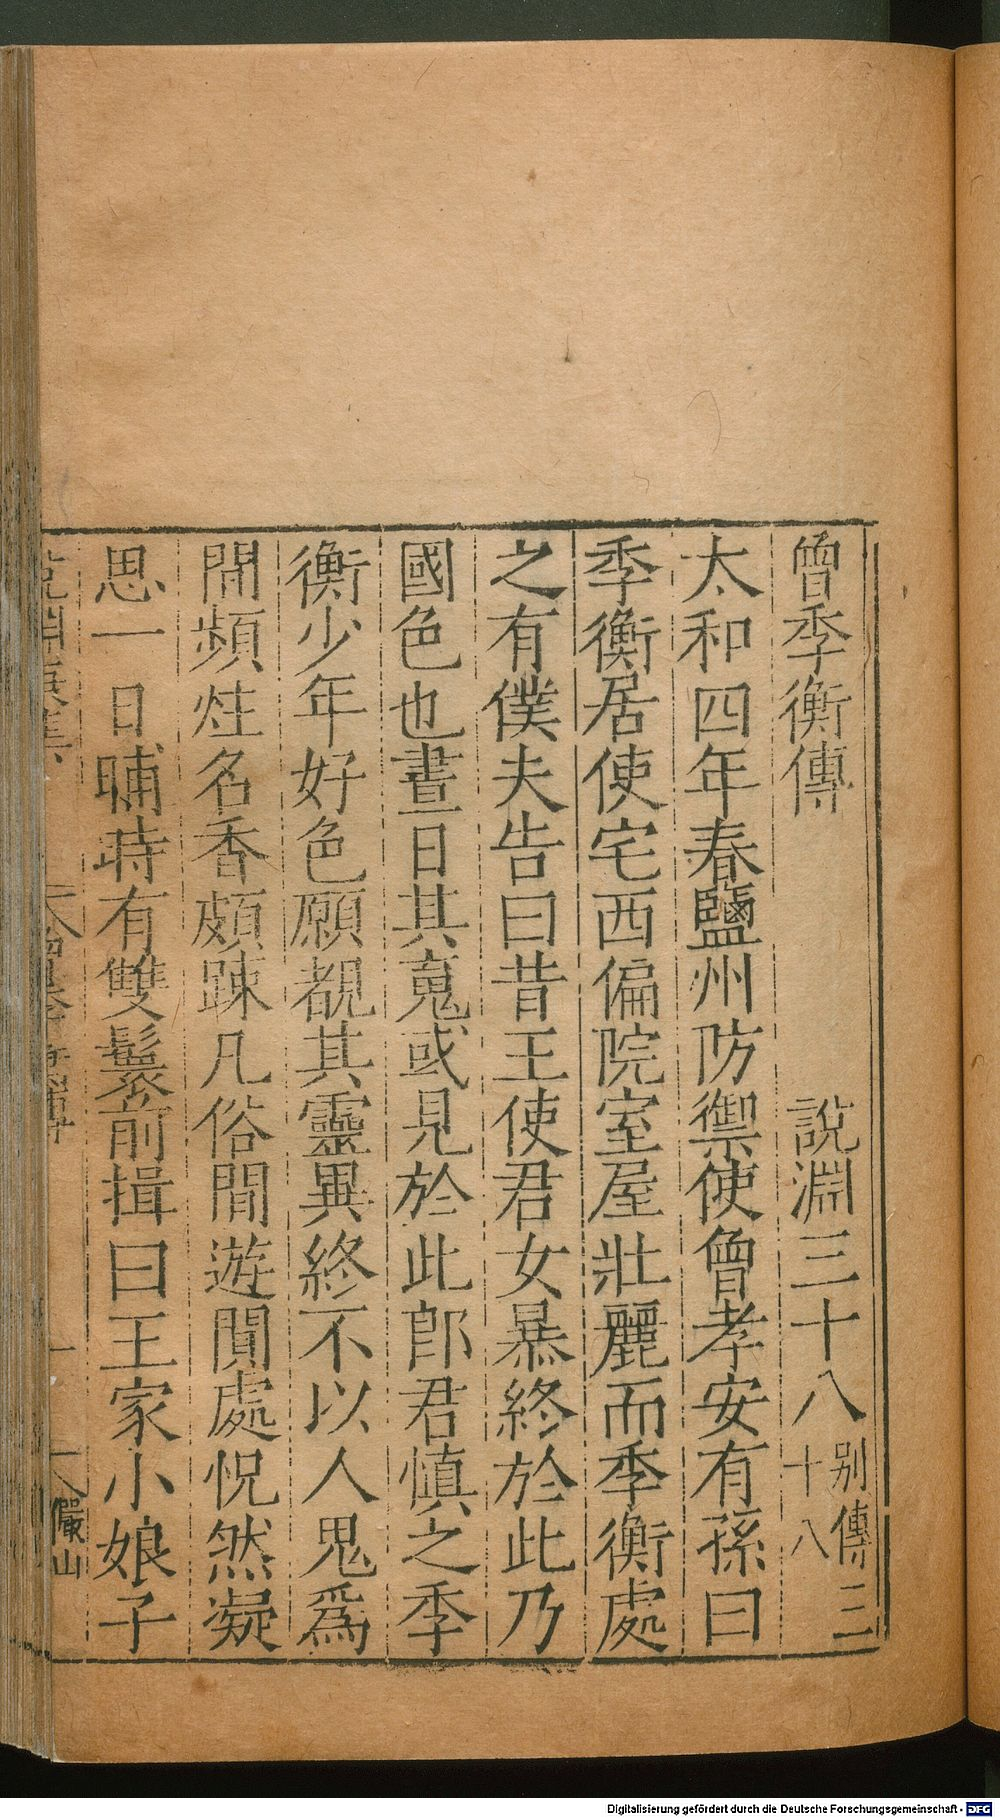 曾季衡傳　　　說淵三十八 别傳三十八
太和四年春鹽州防禦使曾孝安有孫曰
季衡居使宅西偏院室屋壯麗而季衡處
之有僕夫告曰昔王使君女暴終於此乃
國色也晝日其䰟或見於此郎君慎之季
衡少年好色願覩其靈異終不以人鬼爲
閒頻炷名香頗踈凡俗閒遊閒處怳然凝
思一日晡時有雙鬟前揖曰王家小娘子
儼山
Digitalisierung gefördert durch die Deutsche Forschungsgemeinschaft - DFG